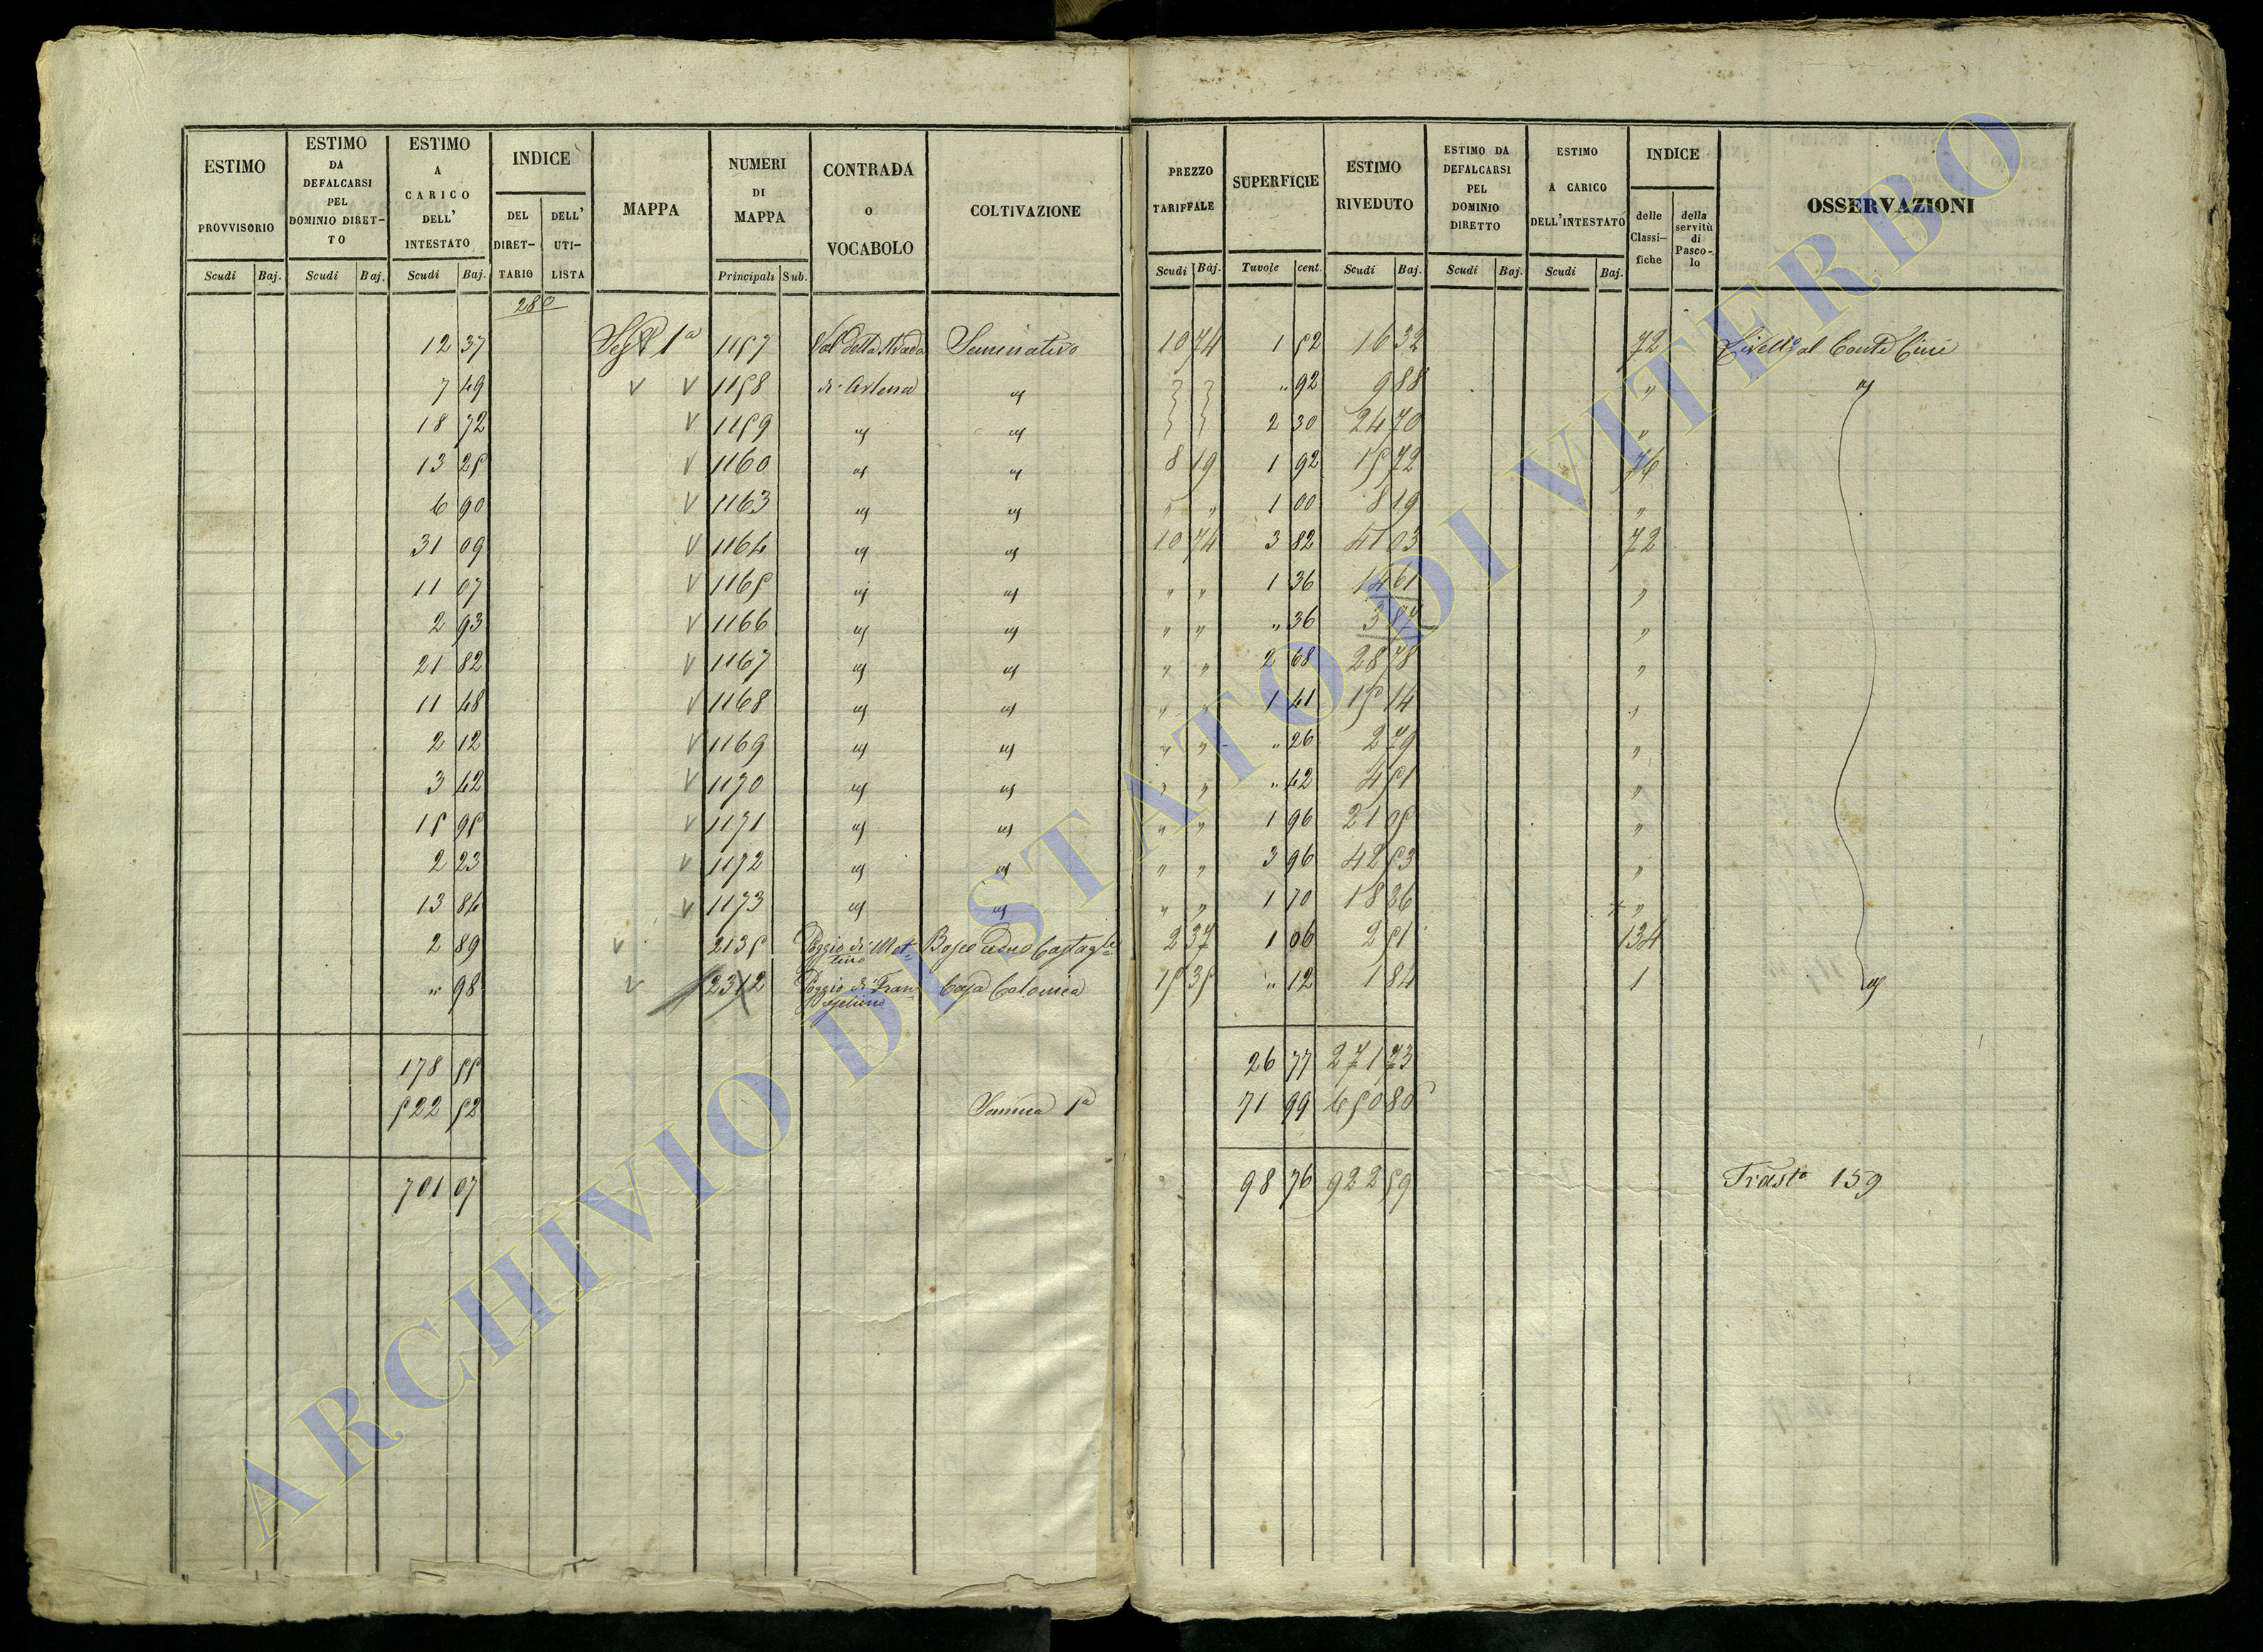 ESTIMO PROVVISORIO
ESTIMO DA DEFALCARSI PEL DOMINIO DIRET-TO
ESTIMO A CARICO DELL' INTESTATO
INDICE
DEL DIRET-TARIO
DELL' UTI-LISTA
MAPPA
NUMERI DI MAPPA
CONTRADA o VOCABOLO
COLTIVAZIONE
PREZZO TARIFFALE
SUPERFICIE
ESTIMO RIVEDUTO
ESTIMO DA DEFALCARSI PEL DOMINIO DIRETTO
ESTIMO A CARICO DELL'INTESTATO
INDICE
delle Classi-fiche
della servitù di Pasco-lo
OSSERVAZIONI
Scudi Baj. Scudi Baj. Scudi Baj. Principali Sub. Scudi Baj. Tavole cent. Scudi Baj. Scudi Baj. Scudi Baj.
280
12 37 1ª 1157 Val della Strada Seminativo 10 74 1 52 16 32 72 Livello al Conte Cini
7 49 V V 1158 di Artena " } } " 92 9 88 " "
18 72 V 1159 " " } } 2 30 24 70 "
13 25 V 1160 " " 8 19 1 92 15 72 76
6 90 V 1163 " " " " 1 00 8 19 "
31 09 V 1164 " " 10 74 3 82 41 03 72
11 07 V 1165 " " " " 1 36 14 61 "
2 93 V 1166 " " " " " 36 3 87 "
21 82 V 1167 " " " " 2 68 28 78 "
11 48 V 1168 " " " " 1 41 15 14 "
2 12 V 1169 " " " " " 26 2 79 "
3 42 V 1170 " " " " " 42 4 51 "
15 95 V 1171 " " " " 1 96 21 05 "
2 23 V 1172 " " " " 3 96 42 53 "
13 84 V 1173 " " " " 1 70 18 26 "
2 89 V 2135 Poggio di Bosco ceduo 2 37 1 06 2 51 134
" 98 V 2312 Poggio di Fran- Casa Colonica 15 35 " 12 1 84 1 "
178 55 26 77 271 73
522 52 Somma 1ª 71 99 650 86
701 07 98 76 922 59 Trasto 159
ARCHIVIO DI STATO DI VITERBO